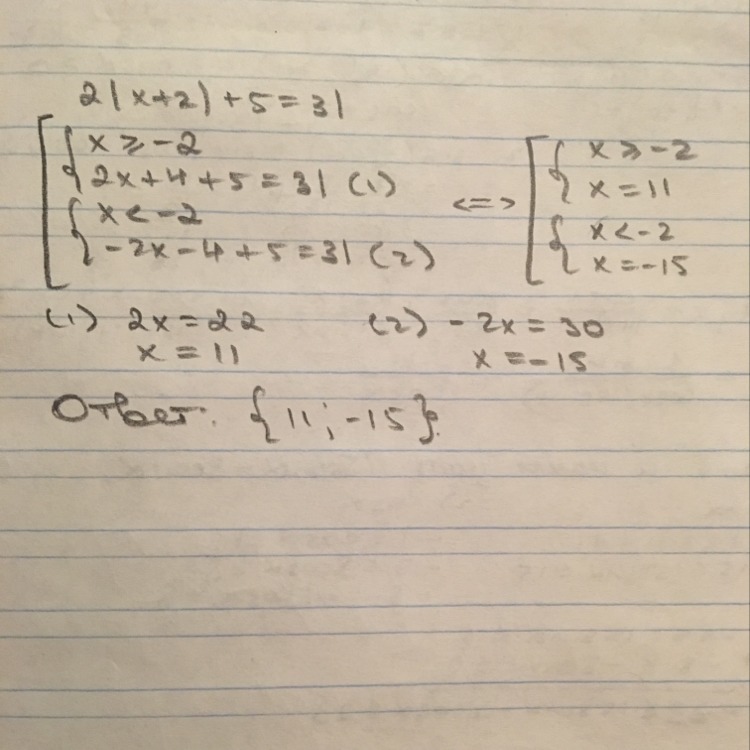 2|x+2|+5=31
x ≥ -2
2x+4+5=31 (1)
x < -2
-2x-4+5=31 (2)
<=>
x ≥ -2
x = 11
x < -2
x = -15
(1) 2x = 22
x = 11
(2) -2x = 30
x = -15
Ответ: {11; -15}.